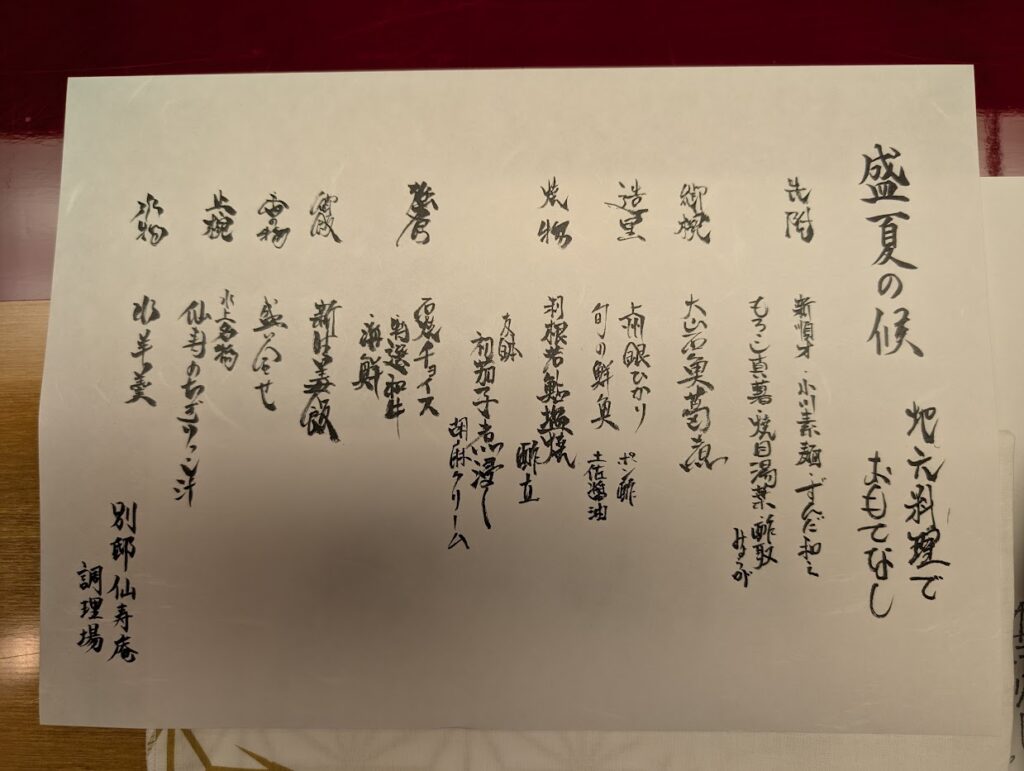 盛夏の候
地元料理で
おもてなし
先附
新順才・小川素麺・ずんだ和え
もろこし真薯・焼目湯葉 酢取
みょうが
御椀
大山女魚葛煮
造里
上州銀ひかり ポン酢
旬の鮮魚 土佐醤油
焼物
利根若鮎塩焼
酢立
友鉢
初茄子煮浸し
胡麻クリーム
強肴
石焼チョイス
特選和牛
海鮮
御飯
新生姜飯
香の物
盛り合せ
止椀
水上名物
仙寿のちぎりっこ汁
水物
水羊羹
別邸仙寿庵
調理場